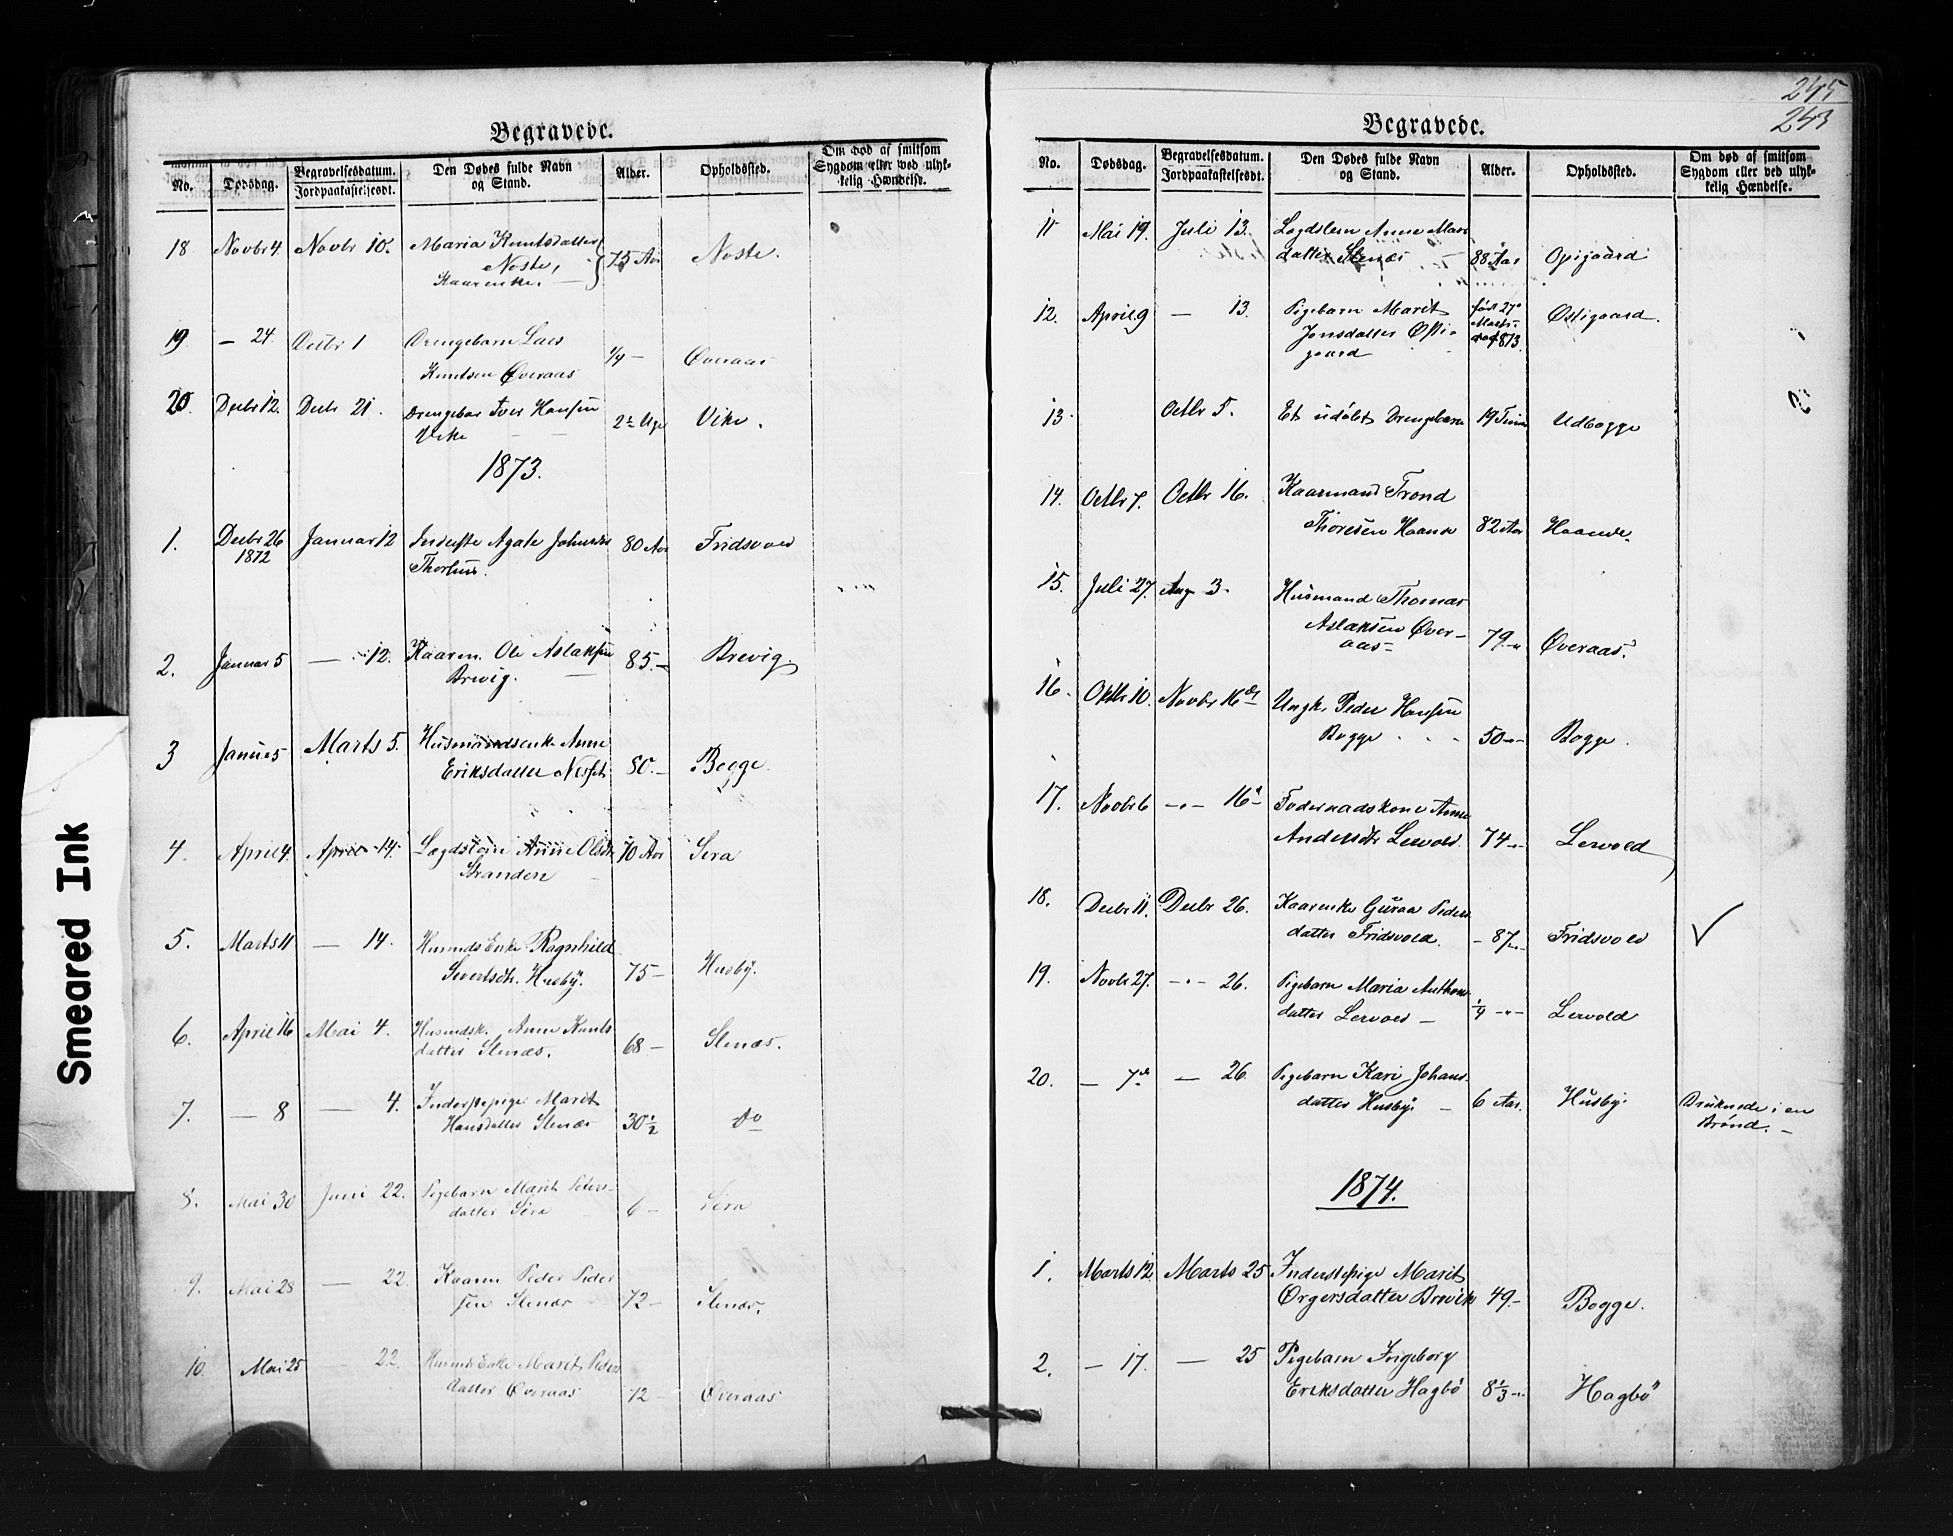 245
243
Begravede.
No. Dødsdag. Begravelsesdatum. Jordpaakastelsesdt. Den Dødes fulde Navn og Stand. Alder. Opholdssted. Om død af smitsom Sygdom eller ved ulykkelig Hændelse.
18 Novbr 4. Novbr 10. Maria Knutsdatter 75 Aar Noste.
Noste,
Kaarenke.
19 — 24. Decbr 1 Drengebarn Lars ¼ — Øveraas
Knutsen Øveraas
20. Decbr 12. Decbr 21. Drengebar Iver Hansen 2½ Uge Vike.
Vike
1873.
1. Decbr 26 Januar 12 Inderste Agate Johnsdtr 80 Aar Fridsvold
1872 Thorhus.
2. Januar 5 — 12. Kaarm. Ole Aslaksen 85. — Brevig
Brevig.
3 Januar 5 Marts 5. Husmandsenke Anne
Eriksdatter Nesset 80. — Bogge.
4. April 4. April 14. Lægdslem Anne Olsdtr 70 Aar Sira
Stranden
5. Marts 11 — 14. Husmds Enke Ragnhild
Sivertsdtr. Husby. 75 — Husby.
6. April 16 Mai 4. Husmdsk. Anne Knuts
datter Stenæs. 68 — Stenæs.
7. — 8 — 4. Inderstepige Marit
Hansdatter Stenæs 30½ do
8. Mai 30 Juni 22. Pigebarn Marit Peters-
datter Sira 6 — Sira
9. Mai 28 — 22. Kaarm Peder Peder
sen Stenæs 72 — Stenæs.
10. Mai 25 22. Husmds Enke Marit Peders
datter Øveraas 72 — Øveraas
Begravede.
No. Dødsdag. Begravelsesdatum. Jordpaakastelsesdt. Den Dødes fulde Navn og Stand. Alder. Opholdssted. Om død af smitsom Sygdom eller ved ulykkelig Hændelse.
11 Mai 19. Juli 13. Lægdslem Anne
datter Stenæs 88 Aar Opigaard
12. April 9 — 13. Pigebarn Marit født 27de Østigaard.
Jonsdatter Østi- Marts
gaard 1873.
13. Octbr 5. Et udøbt Drengebarn 19 Timer Udbogge
14. Octbr 7. Octbr 16. Kaarmand Trond
Thoresen Haande 82 Aar Haande.
15. Juli 27. Aug 3. Husmand Thomas
Aslaksen Øver-
aas — 79 -„- Øveraas.
16. Oktbr 10. Novbr 16de Ungk. Peder Hansen
Bogge 50 -„- Bogge.
17. Novbr 6 -„- 16de Foderaadskone Anne
Andersdtr Lervold. 74 -„- Lervold
18. Decbr 11. Decbr 26. Kaarenke Guraa Peders
datter Fridsvold. - 87 -„- Fridsvold
19. Novbr 27. -„- 26. Pigebarn Maria Anthons
datter Lervold — ¼ -„- Lervold
20. — 7de — 26. Pigebarn Kari Johans-
datter Husby. — 6 Aar. Husby. Druknede i en
Brønd. —
1874.
1. Marts 12. Marts 25 Inderstepige Marit
Ørgersdatter Brevik 49. — Bogge.
2. — 17. — 25 Pigebarn Ingeborg
Eriksdatter Hagbö 8⅓ -„- Hagbö
Smeared Ink